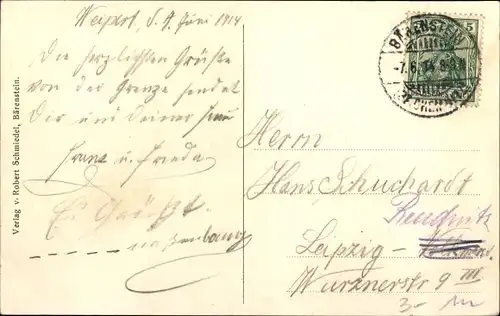 Weipert, d. 7. Juni 1914
Die herzlichsten Grüße
von der Grenze sendet
Dir und Deiner Frau
Franz u. Frieda
Es Grüßt
Verlag v. Robert Schmiedel, Bärenstein.
BÄRENSTEIN
-7.6.14
5
Herrn
Hans Schuchardt
Reudnitz
Leipzig-
Wurznerstr 9 III